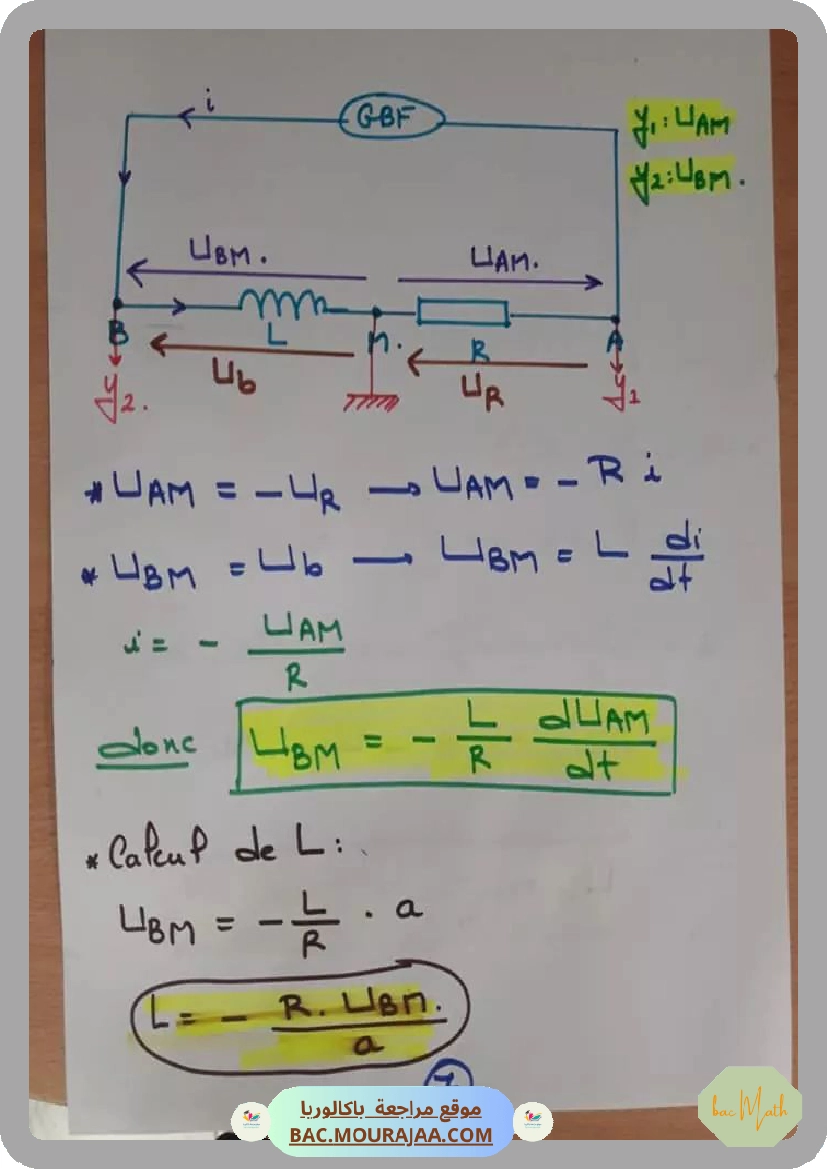 i
GBF
y₁ : U_AM
y₂ : U_BM .
U_BM .
U_AM .
B L M . R A
U_b
U_R
y₂ .
y₁
* U_AM = - U_R → U_AM = - R i
* U_BM = U_b → U_BM = L di/dt
i = - U_AM/R
donc U_BM = - L/R dU_AM/dt
* Calcul de L :
U_BM = - L/R . a
L = - R . U_BM ./a
موقع مراجعة باكالوريا
BAC.MOURAJAA.COM
bac Math